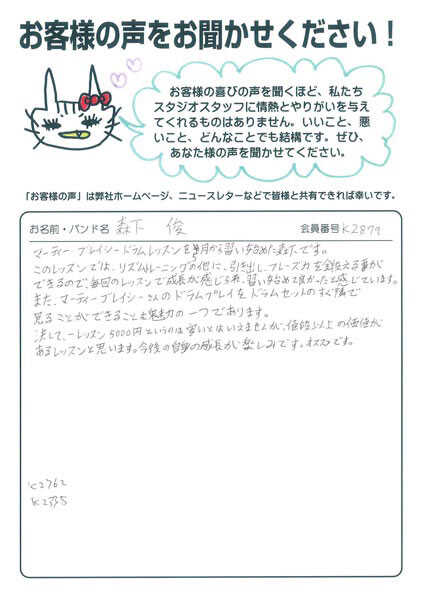 お客様の声をお聞かせください！
お客様の喜びの声を聞くほど、私たち
スタジオスタッフに情熱とやりがいを与え
てくれるものはありません。いいこと、悪
いこと、どんなことでも結構です。ぜひ、
あなた様の声を聞かせてください。
「お客様の声」は弊社ホームページ、ニュースレターなどで皆様と共有できれば幸いです。
お名前・バンド名 森下 俊 会員番号 K2879
マーティー ブレイシードラムレッスンを 月から習い始めた森下です。
このレッスンでは、リズムトレーニングの他に、引き出し、フレーズ力を鍛える事が
できるので毎回のレッスンで成長が感じられ、習い始めて良かったと感じています。
また、マーティーブレイシーさんのドラムプレイをドラムセットのすぐ隣で
見ることができることも魅力の一つであります。
決して、一レッスン5000円というのは安いとはいえませんが、値段以上の価値が
あるレッスンと思います。今後の自身の成長が楽しみです。オススメです。
K2762
K2535